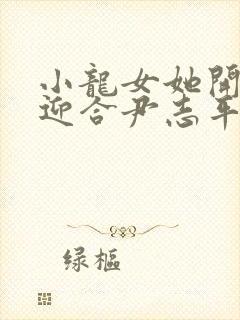 小龍女她開
迎合尹志平
绿樞